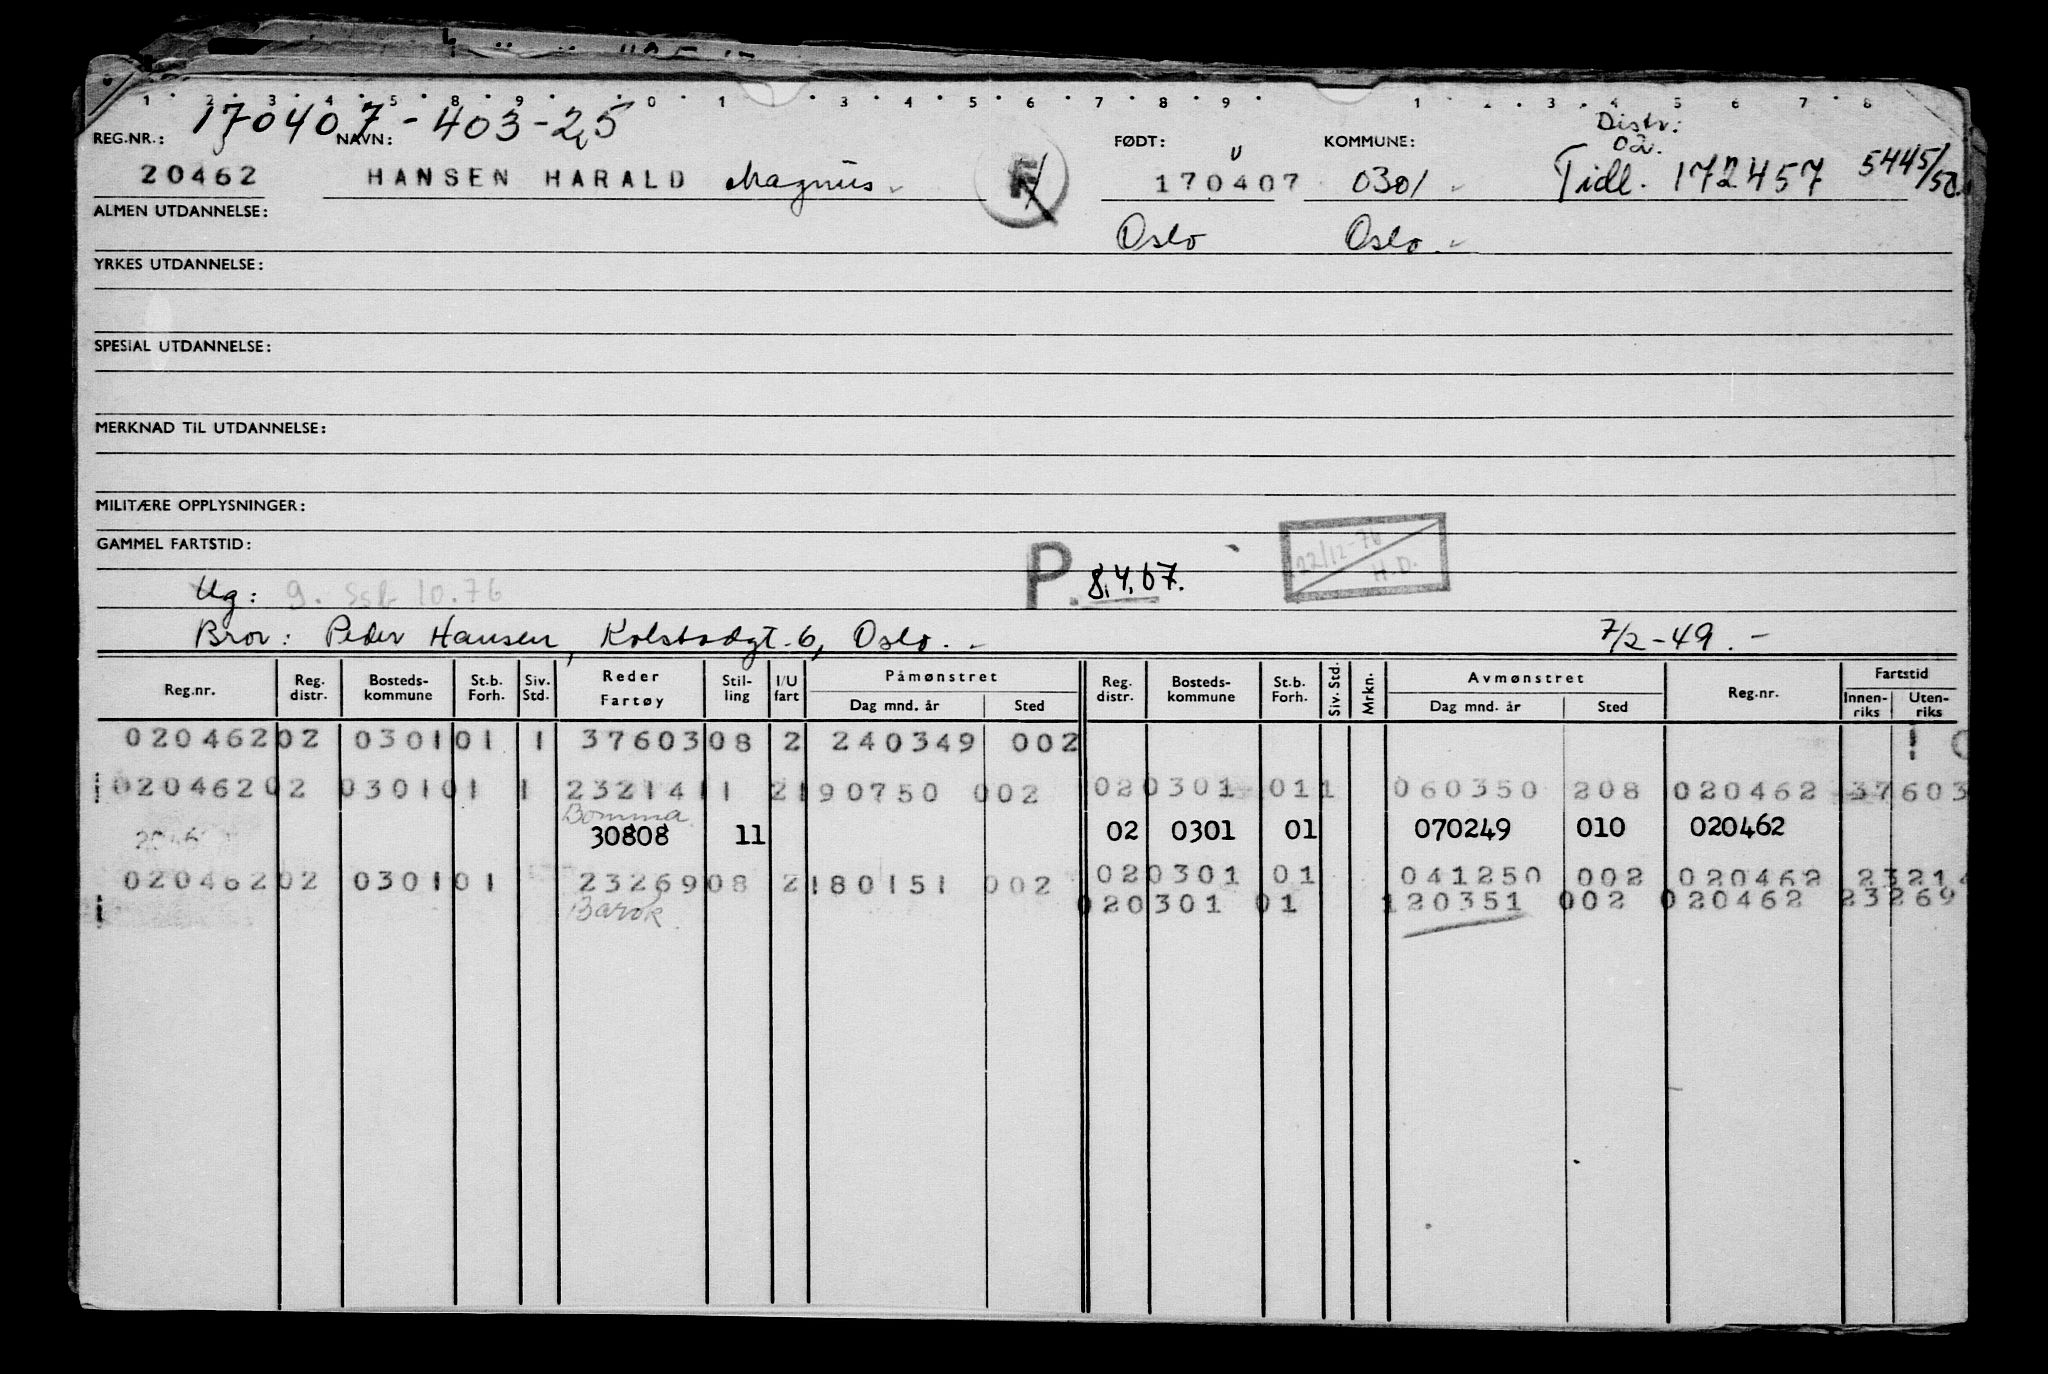 1 2 3 4 5 8 9 0 1 3 4 5 6 7 8 9 1 2 3 4 5 6 7 8
170407-403-25
Distr:
02.
REG.NR.: NAVN: FØDT: KOMMUNE:
20462 HANSEN HARALD Magnus 170407 0301 Tidl. 172457 5445/50.
ALMEN UTDANNELSE: Oslo Oslo.
YRKES UTDANNELSE:
SPESIAL UTDANNELSE:
MERKNAD TIL UTDANNELSE:
MILITÆRE OPPLYSNINGER:
GAMMEL FARTSTID:
22/12-76
H.D.
P. 8.4.67.
Ug: 9. Ssb 10.76
Bror: Peder Hansen, Kolstadgt. 6, Oslo. - 7/2-49. -
Reg.nr. Reg. distr. Bosteds-kommune St.b. Forh. Siv. Std. Reder Fartøy Stil-ling I/U fart Påmønstret Dag mnd. år Sted Reg. distr. Bosteds-kommune St.b. Forh. Siv. Std. Mrkn. Avmønstret Dag mnd. år Sted Reg.nr. Fartstid Innen-riks Uten-riks
020462 02 0301 01 1 37603 08 2 240349 002
020462 02 0301 01 1 23214 11 2 190750 002 02 0301 01 1 060350 208 020462 37603
Bomma
30808 11 02 0301 01 070249 010 020462
020462 02 0301 01 23269 08 2 180151 002 02 0301 01 041250 002 020462 23214
Barok 02 0301 01 120351 002 020462 23269